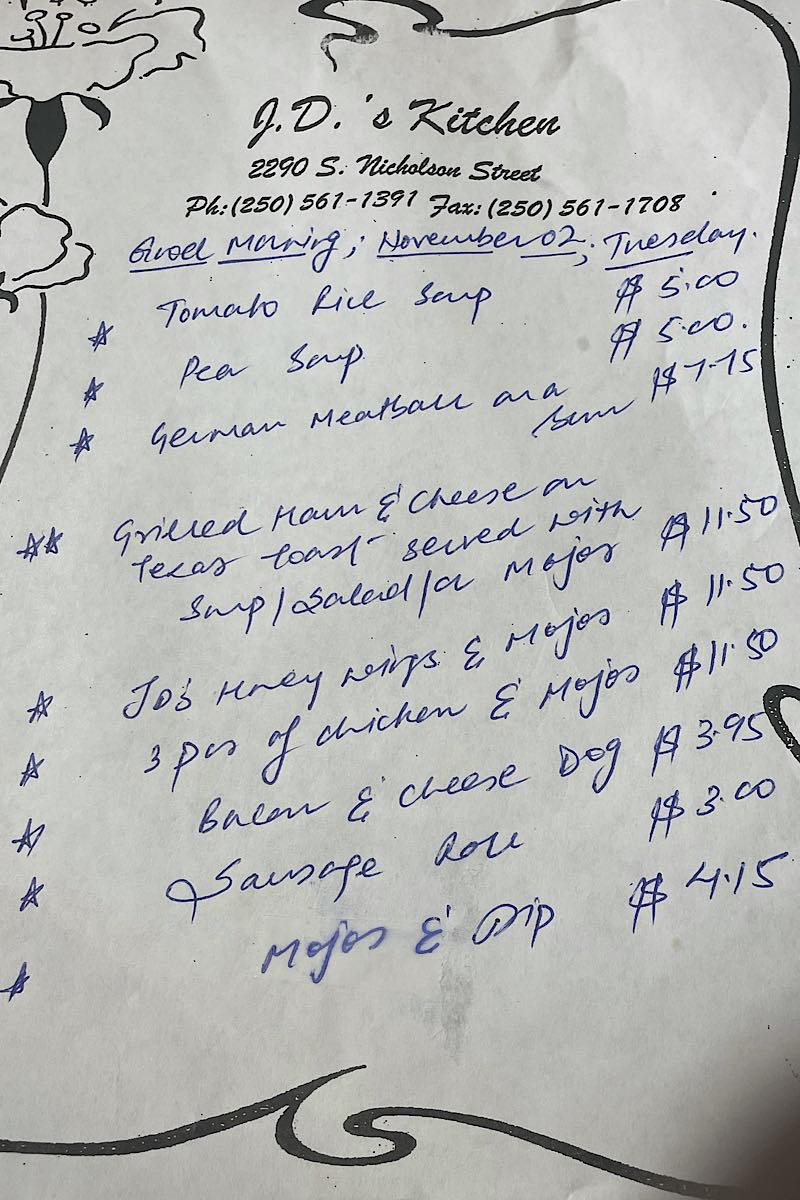 J.D.'s Kitchen
2290 S. Nicholson Street
Ph: (250) 561-1391 Fax: (250) 561-1708
Good Morning; November 02; Tuesday.
☆ Tomato Rice Soup $ 5.00
☆ Pea Soup $ 5.00.
☆ German Meatball on a
Bun $ 7.75
☆☆ Grilled Ham & Cheese on
Texas toast served with
Soup/Salad/or Mojos $ 11.50
☆ JD's Honey Wings & Mojos $ 11.50
☆ 3 pcs of chicken & Mojos $ 11.50
☆ Bacon & cheese Dog $ 3.95
☆ Sausage Roll $ 3.00
☆ Mojos & Dip $ 4.15